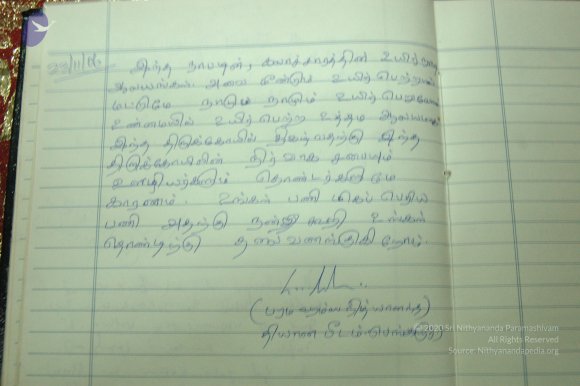 23/11/06
இந்த நாட்டின், கலாச்சாரத்தின் உயிர் நாடி
ஆலயங்கள். அவை மீண்டும் உயிர் பெற்றால்
மட்டுமே நாடும் நாமும் உயிர் பெறுவோம்
உண்மையில் உயிர் பெற்ற உத்தம ஆலயமாக
இந்த திருக்கோயில் திகழ்வதற்கு இந்த
திருக்கோயிலின் நிர்வாக தலைவரும்
ஊழியர்களும் தொண்டர்களுமே
காரணம். உங்கள் பணி மிகப் பெரிய
பணி அதற்கு நன்றி கூறி உங்கள்
தொண்டிற்கு தலை வணங்குகிறோம்.
(பரமஹம்ஸ நித்யானந்த)
தியான பீடம் பெங்களூர்
©2020 Sri Nithyananda Paramashivam
All Rights Reserved
Source: Nithyanandapedia.org